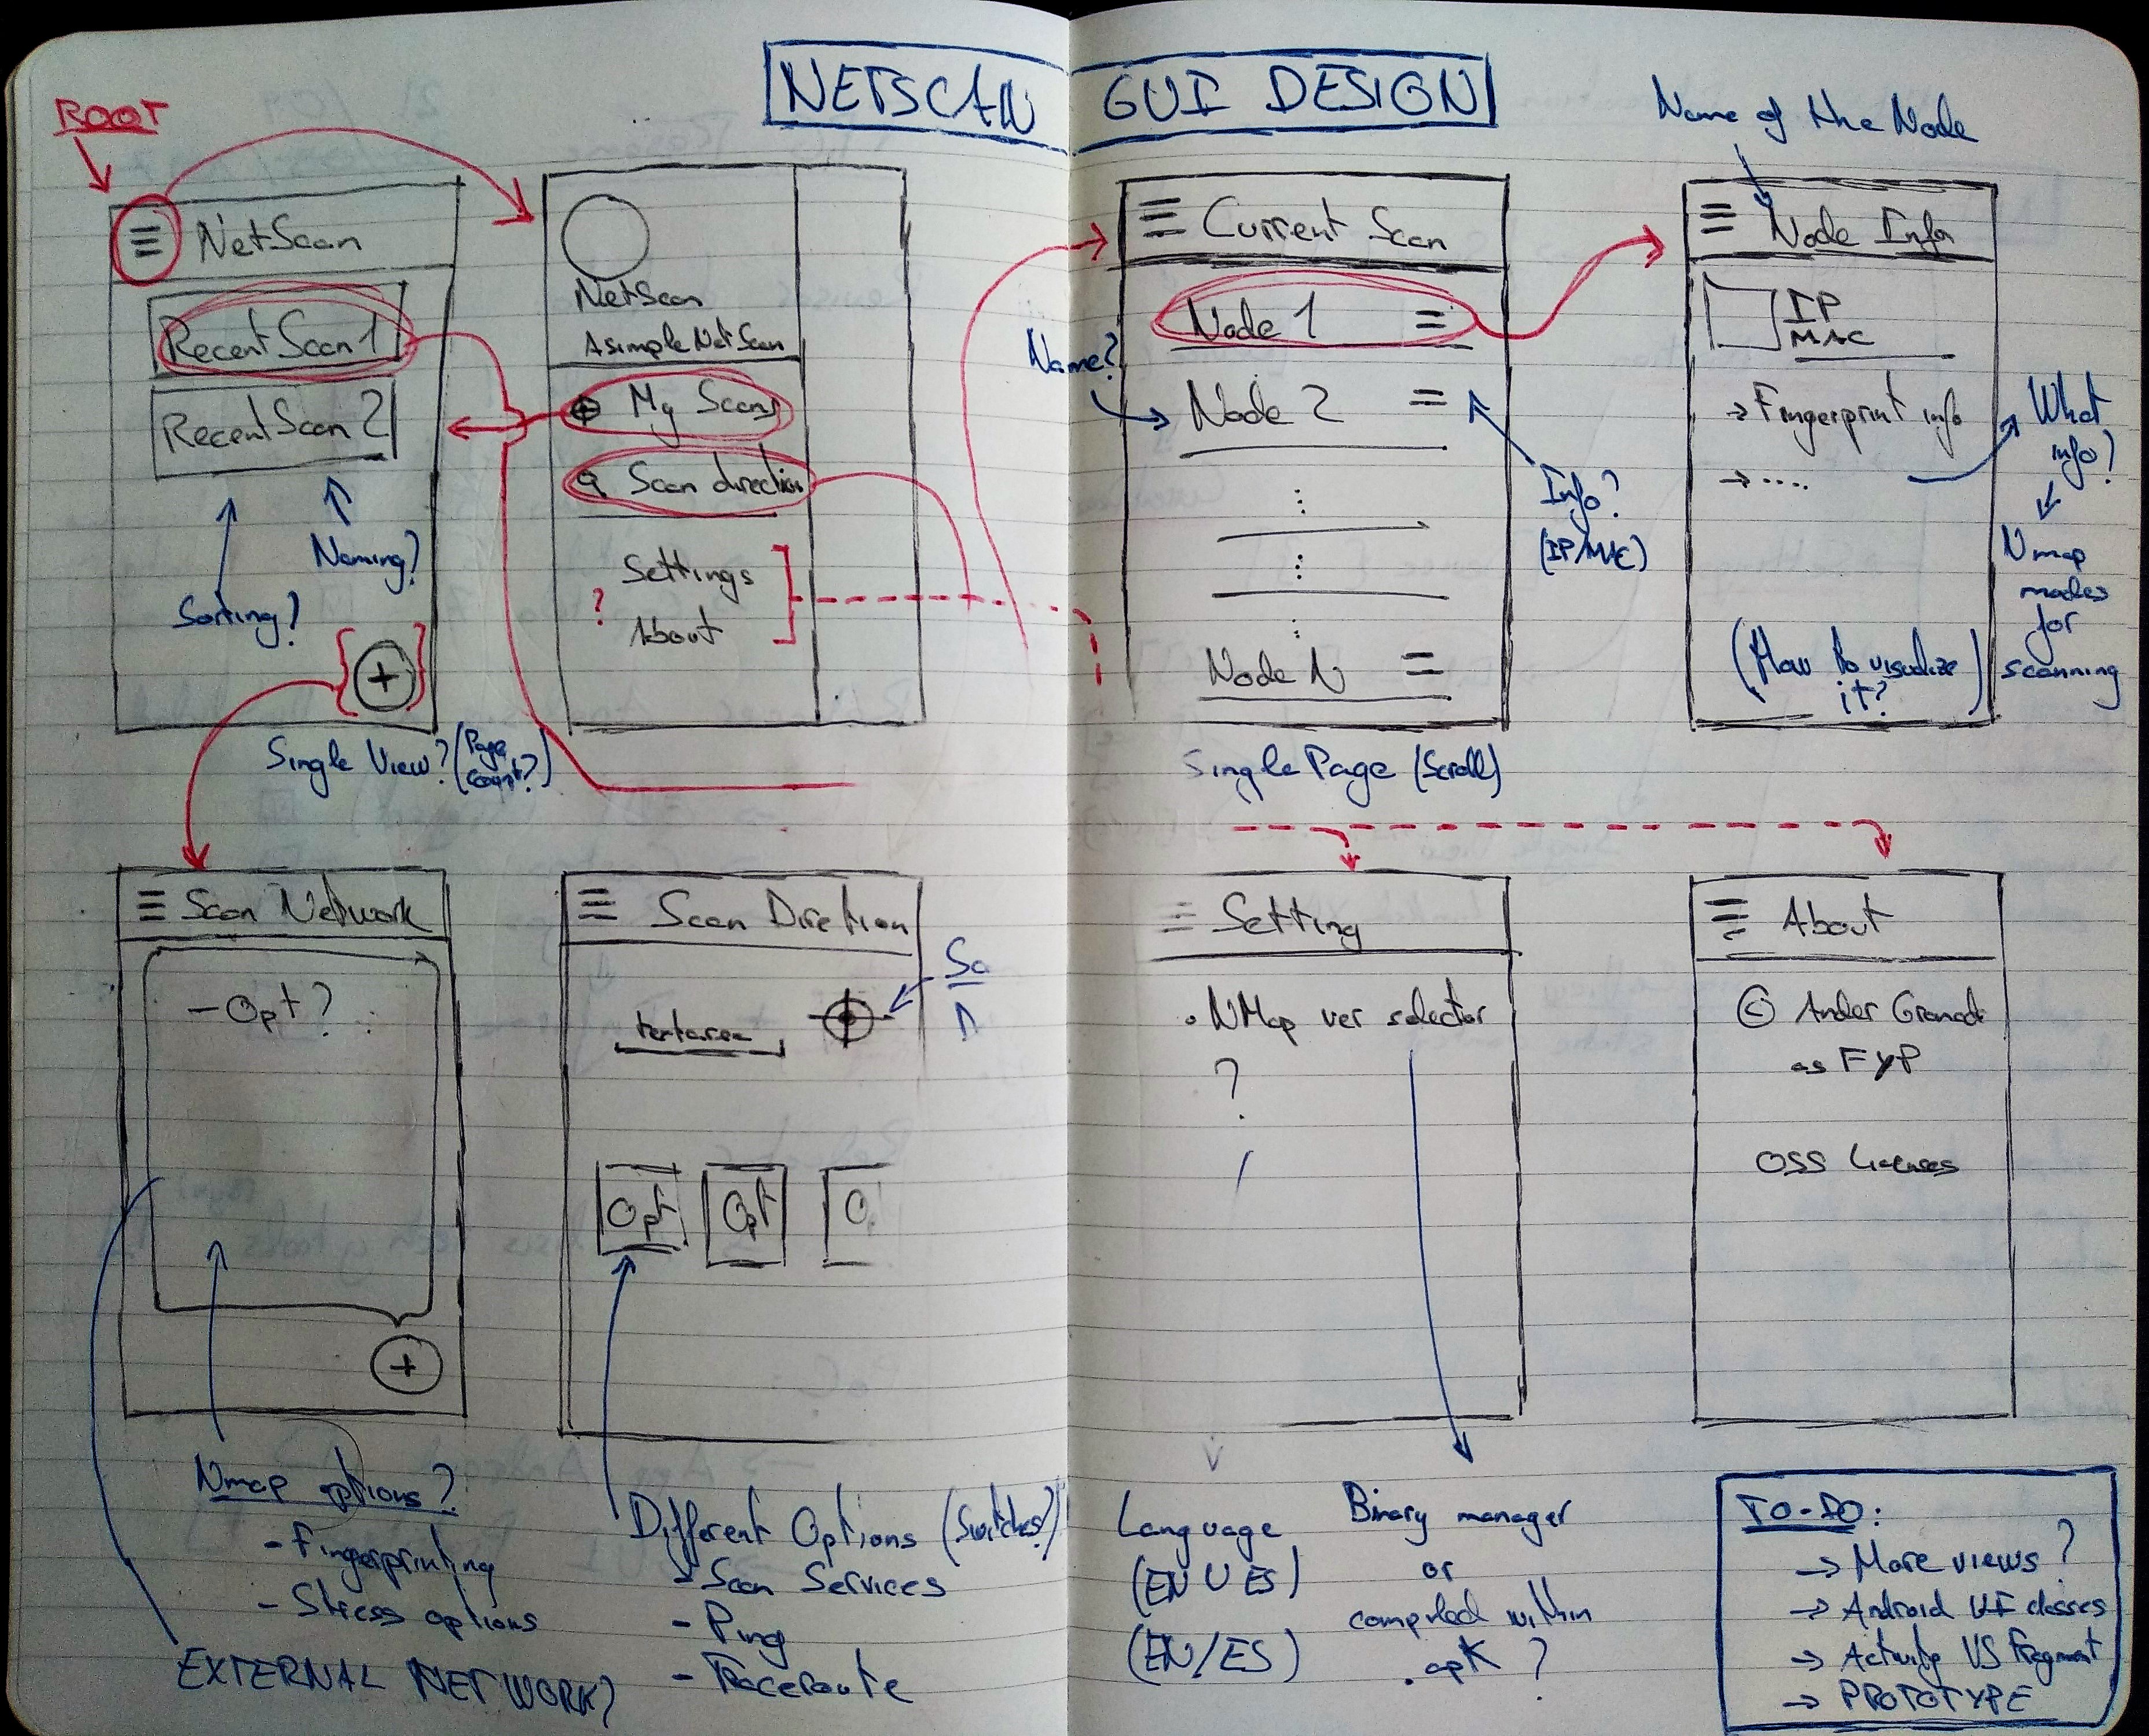 NETSCAN GUI DESIGN
ROOT
NetScan
RecentScan1
RecentScan2
Naming?
Sorting?
+
Single View? (Page count?)
NetScan
A simple NetScan
My Scans
Scan direction
Settings
?
About
Current Scan
Node 1
Name?
Node 2
Info?
(IP/MAC)
Node N
Single Page (Scroll)
Name of the Node
Node Info
IP
MAC
→ Fingerprint info
→ ....
What
info?
Nmap
modes
for
scanning
(How to visualize
it?)
Scan Network
- Opt?
+
Nmap options?
- Fingerprinting
- Stress options
EXTERNAL NETWORK?
Scan Diretion
textarea
Opt
Opt
Different Options (Switches?)
- Scan Services
- Ping
- Traceroute
Setting
. NMap ver selector
?
Language
(EN U ES)
(EN/ES)
Binary manager
or
compiled within
.apk ?
About
© Ander Granado
as FYP
OSS Licenses
TO-DO:
→ More views?
→ Android UI classes
→ Activity VS Fragment
→ PROTOTYPE